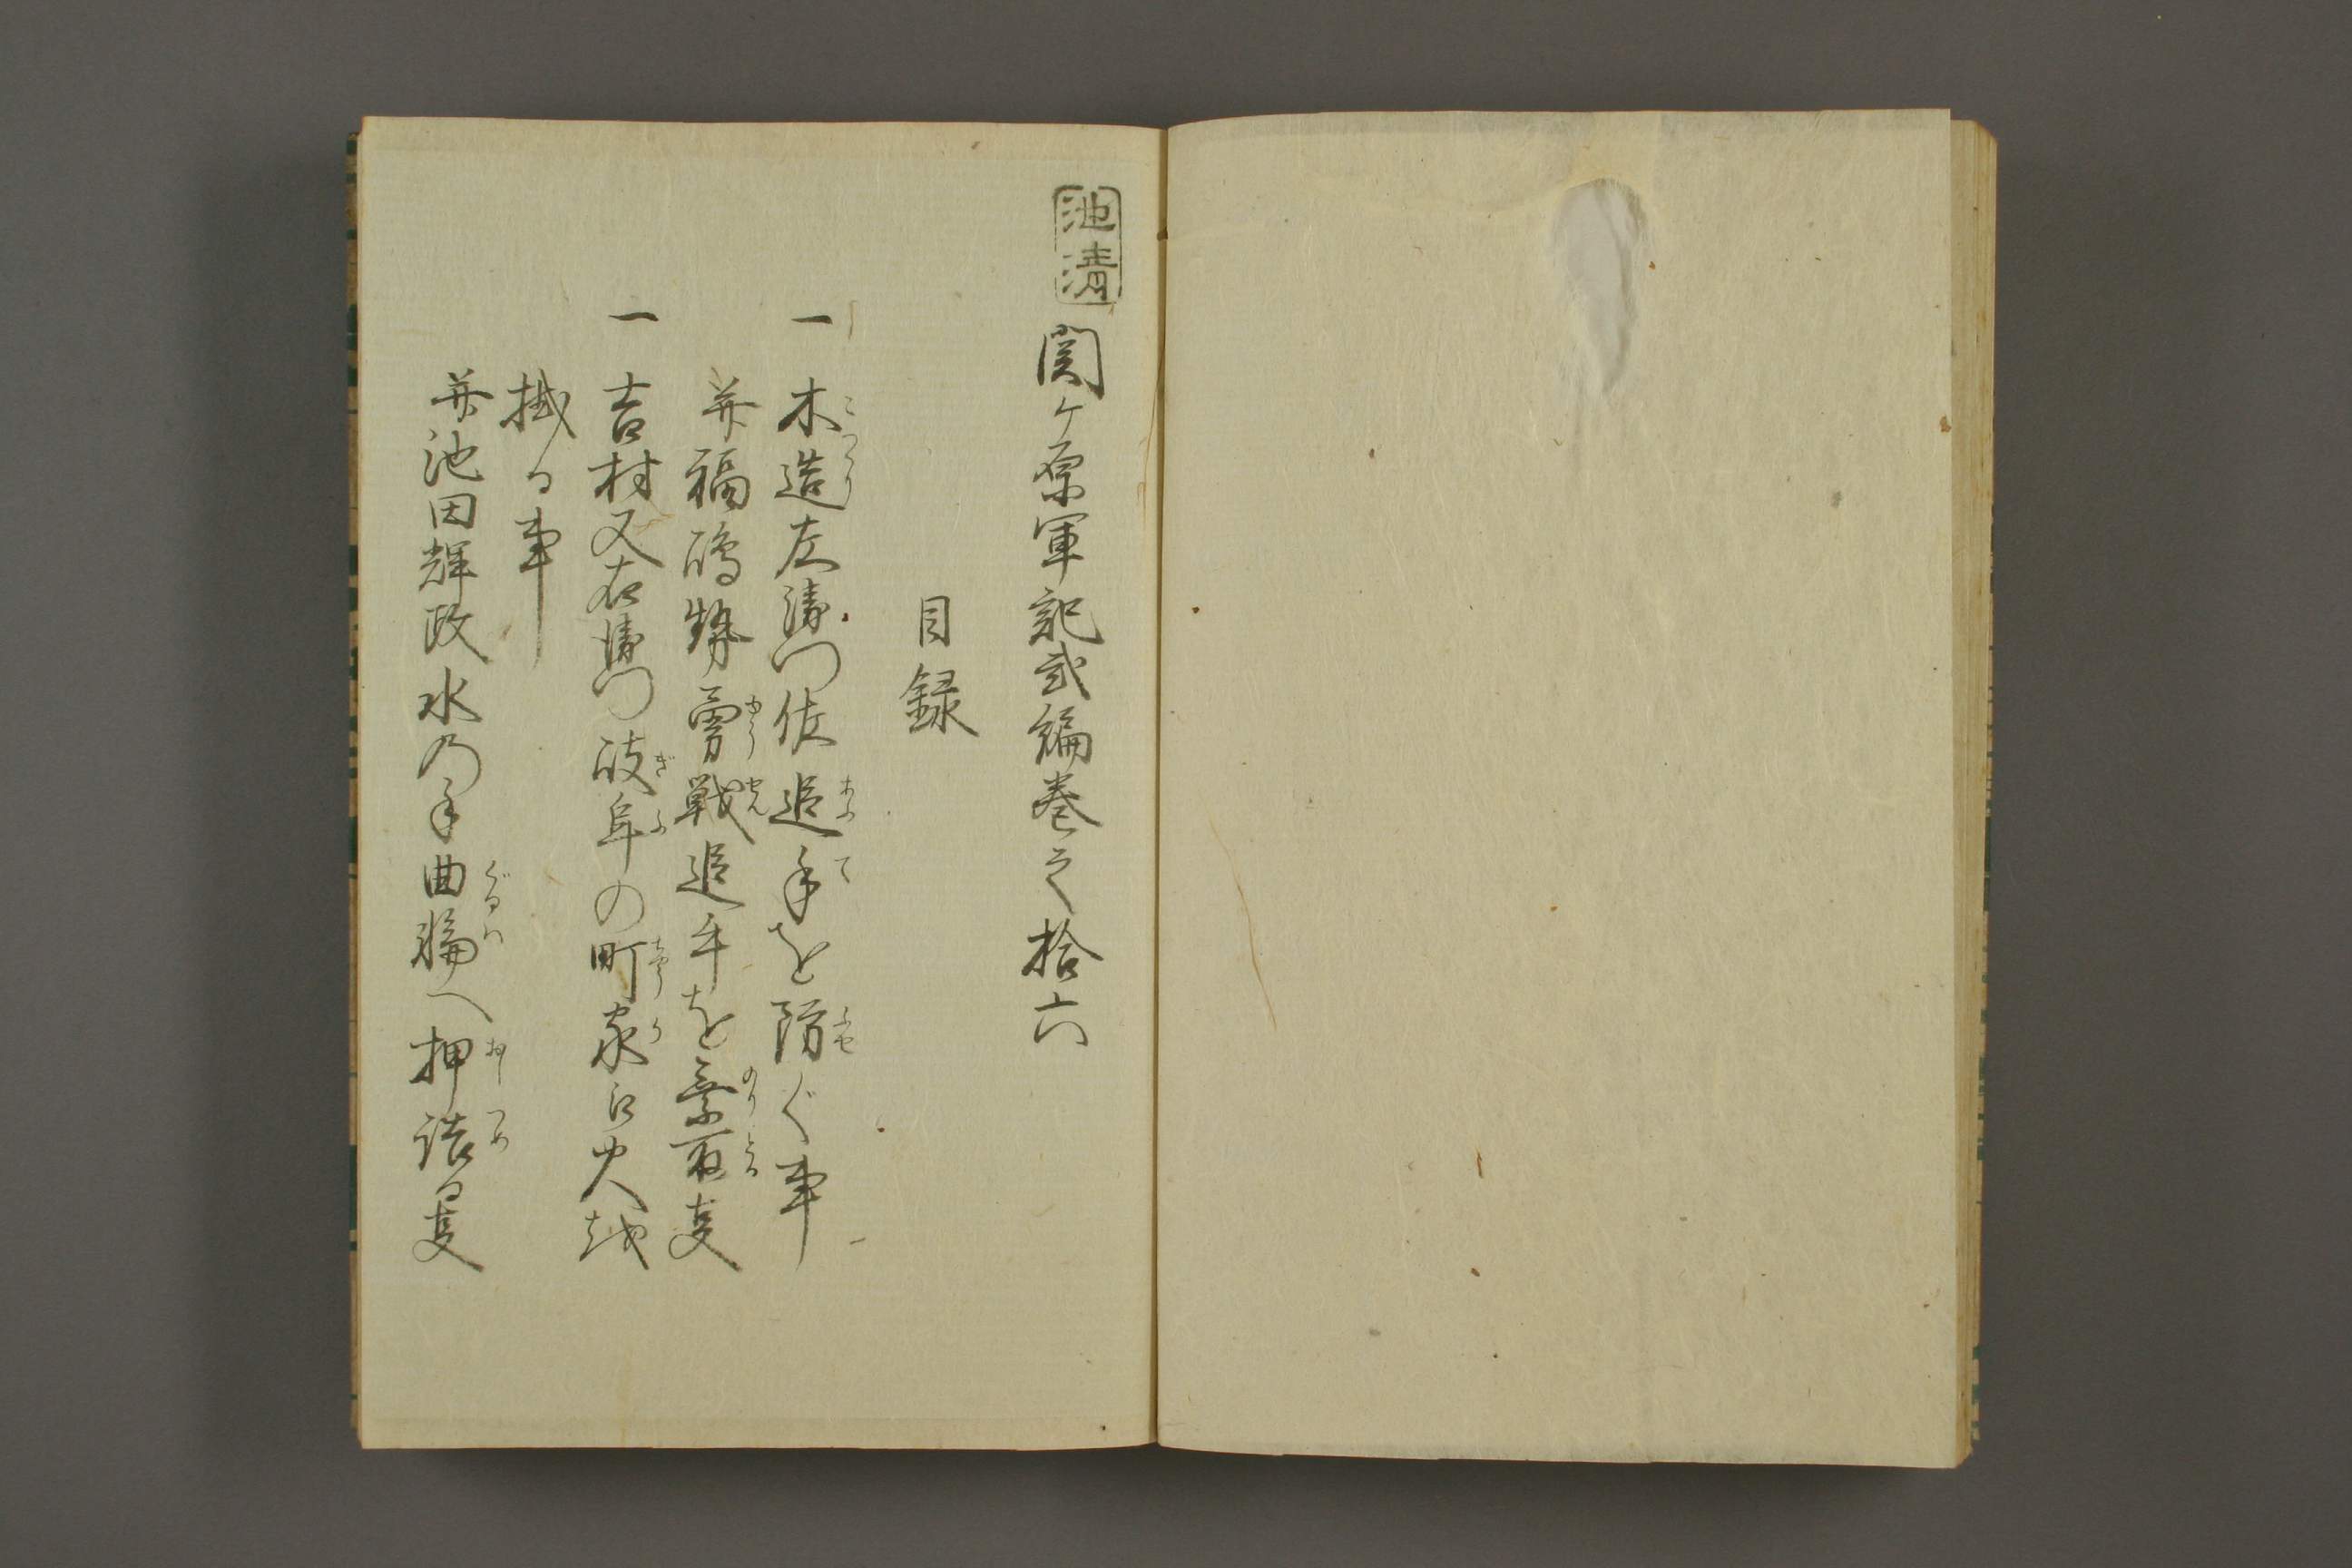 池清
関ヶ原軍記弐編巻之拾六
目録
一木造左衛門佐追手を防ぐ事
并福嶋勢勇戦追手を乗取事
一吉村又右衛門岐阜の町家江火を
掛る事
并池田輝政水の手曲輪へ押詰る事